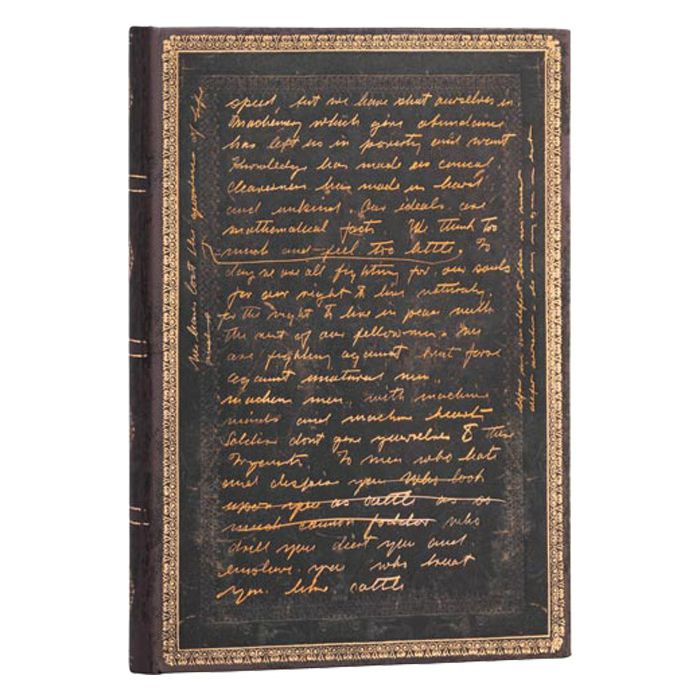 speed, but we have shut ourselves in
Machinery which gives abundance
has left us in poverty and want
Knowledge has made us cynical,
cleverness has made us hard,
and unkind. Our ideals are
mathematical facts. We think too
much and feel too little. To
day we are all fighting for our souls
for our right to live naturally,
for the right to live in peace with
the rest of our fellowmen. We
are fighting against that force
against unnatural men,
machine men, with machine
minds and machine hearts
Soldiers dont give yourselves to these
Tyrants. To men who hate
and despise you who look
upon you as cattle as so
much cannon fodder who
drill you diet you and
enslave you who treat
you like cattle
We have lost the of life